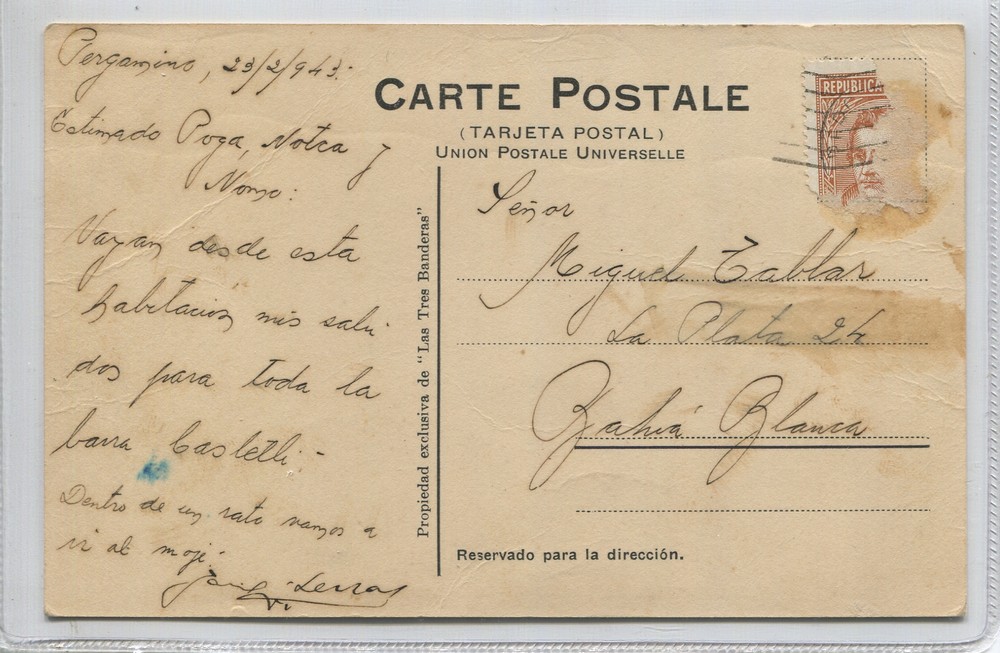 Pergamino, 23/2/943.
CARTE POSTALE
(TARJETA POSTAL)
UNION POSTALE UNIVERSELLE
REPUBLICA
Estimado Poga, Notca y
Nono:
Vayan desde esta
habitación mis salu
dos para toda la
barra Castelli.-
Dentro de un rato vamos a
ir al
Propiedad exclusiva de "Las Tres Banderas"
Señor
Miguel Tablar
La Plata 24
Bahía Blanca
Reservado para la dirección.